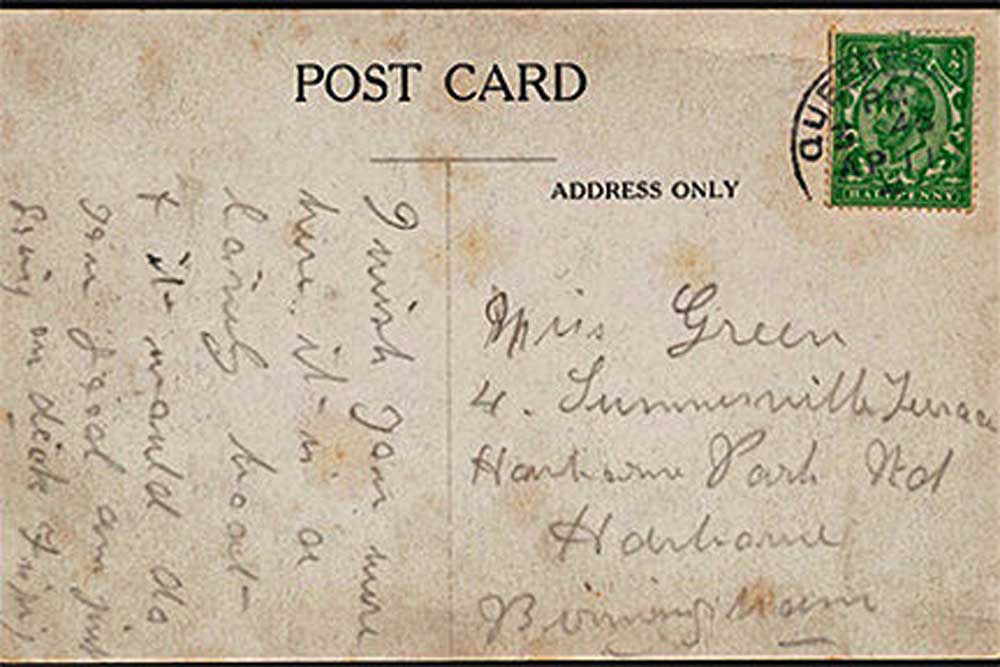 POST CARD
ADDRESS ONLY
QUEE
AP 11
HALFPENNY
I wish you were
here it is a
lovely boat
& it would do
you good am just
going on deck
Miss Green
4. Summerville Terrace
Harborne Park Rd
Harborne
Birmingham